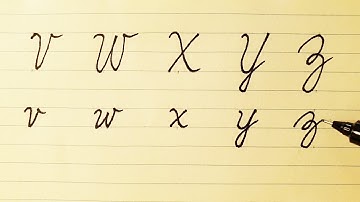 V W X Y Z
v w x y z